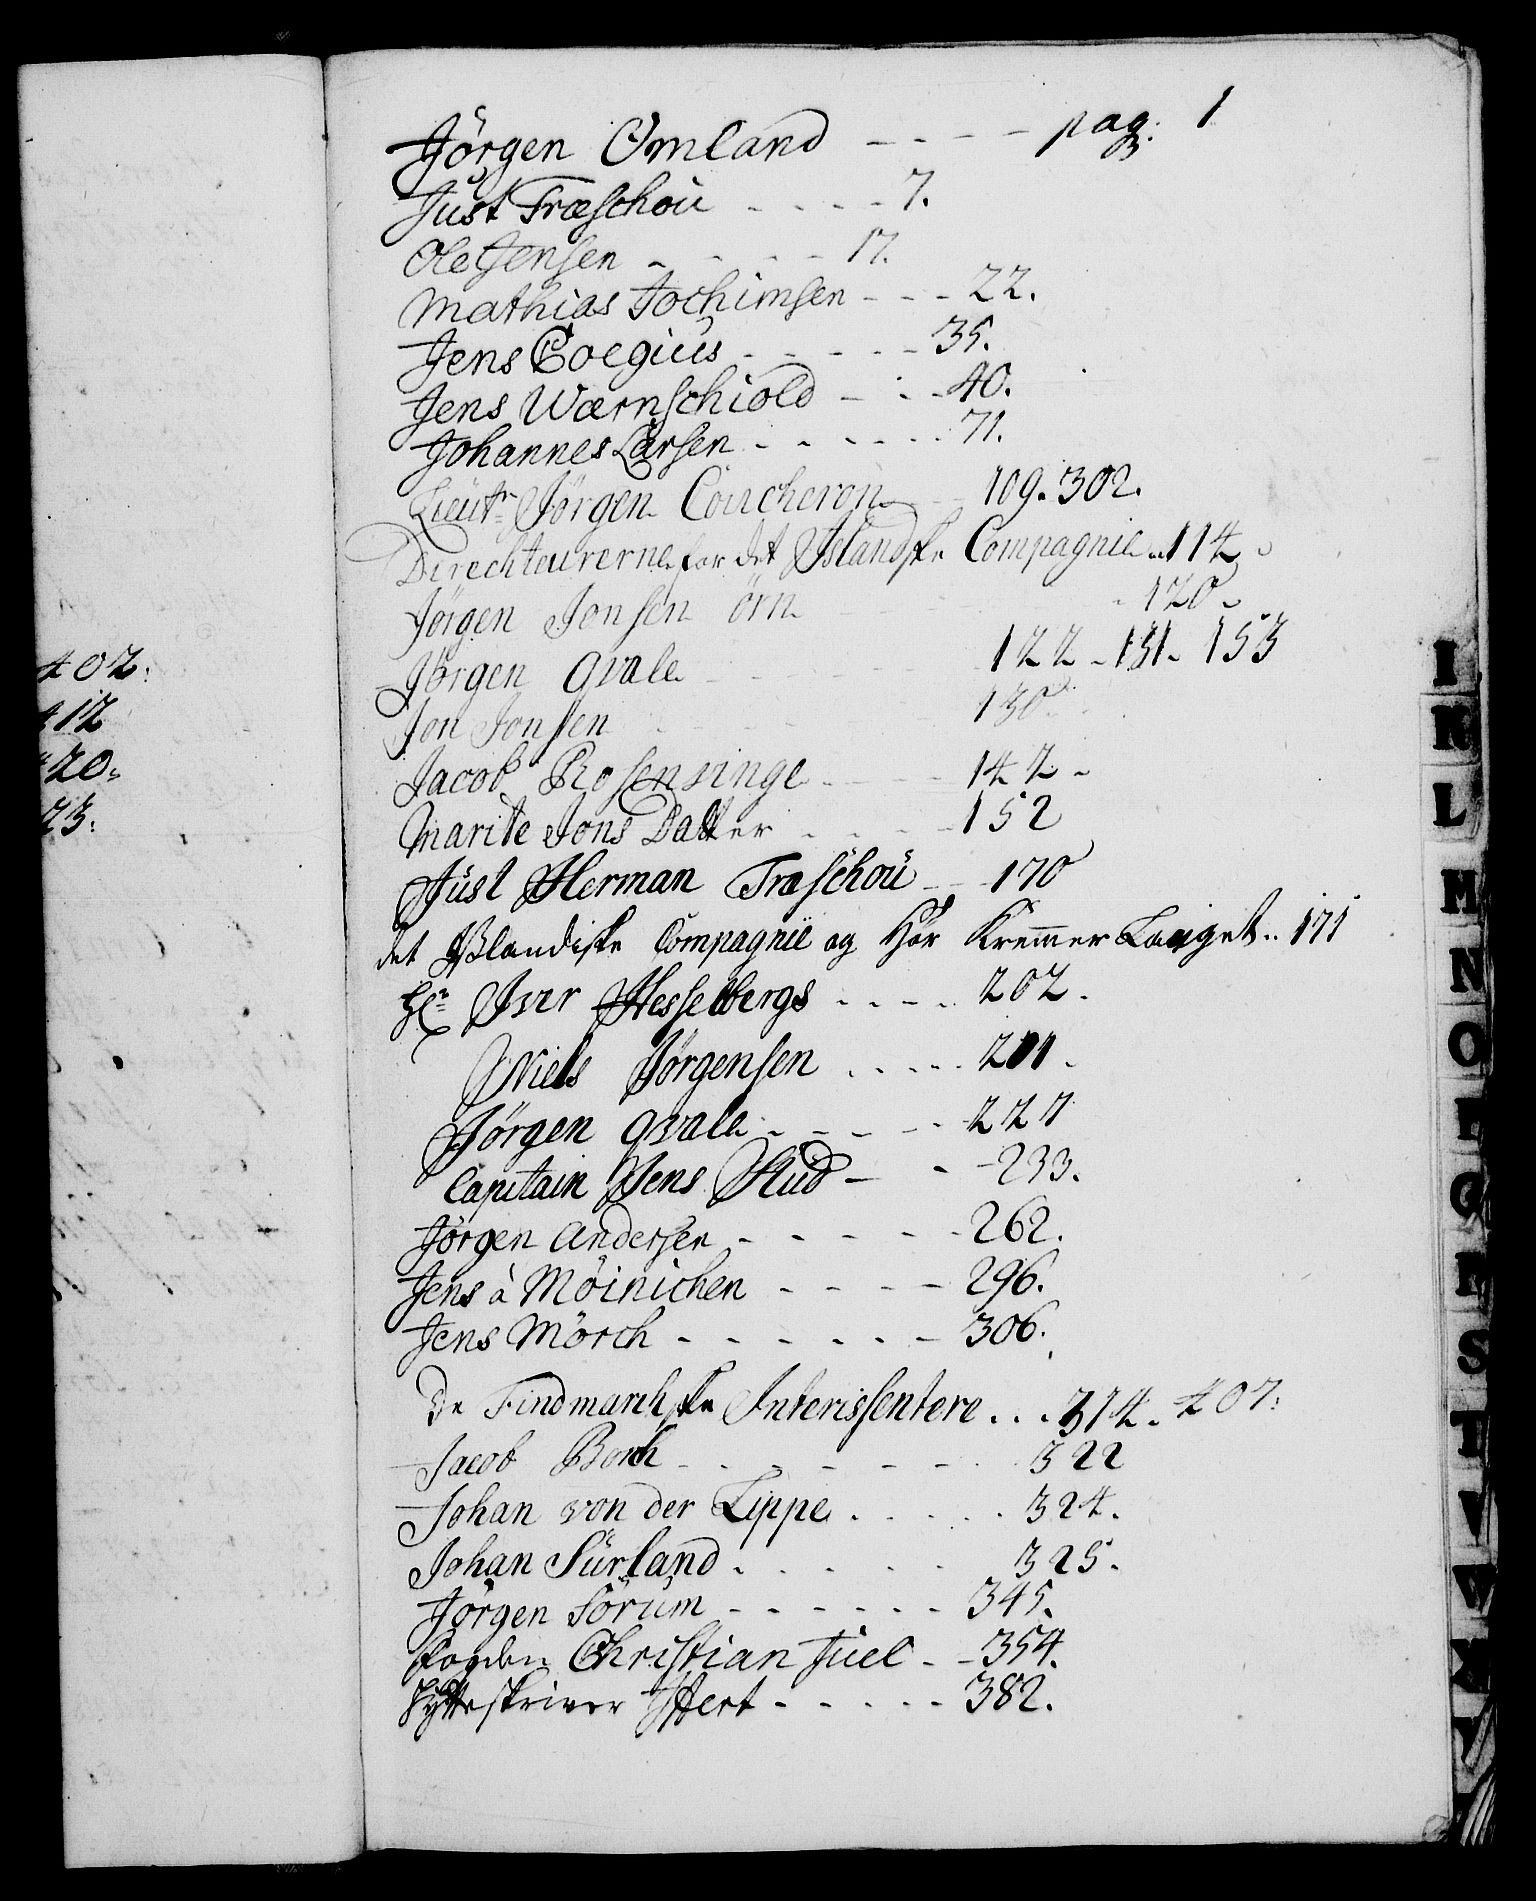 402.
412
420.
23.
Jörgen Omland - - - - pag: 1
Just Træschou - - - - 7.
Ole Jensen - - - - 17.
Mathias Jochimsen - - - 22.
Jens Coegius - - - - - 35.
Jens Wærnschiold - - - 40.
Johannes Larsen - - - - - - 71.
Lieut: Jörgen Coucheron 109. 302.
Direchteurerne for det Islandske Compagnie .. 114
Jörgen Jonsen örn - 120
Jörgen Qvale - - - 122 - 131 - 153
Jon Jonsen - - - 130
Jacob Rosenvinge - - - 142 -
Marite Jons Datter - - - - 152
Just Herman Træschou - - 170
det Islandiske Compagnie og Hör Kremmer Lauget .. 171
Hr Iver Hesselbergs - - - - 202.
Niels Jörgensen . . . . . 201.
Jörgen Qvale - - - - - 227
Capitain Jens Stud - - - 233.
Jörgen Andersen - - - - - 262.
Jens à Möinichen - - - - 296.
Jens Mörch - - - - - - 306.
De Findmarchske Interissentere . . . 314. 407:
Jacob Borch - - - - - - 322
Johan von der Lippe . . . . . 324.
Johan Sürland . . . . . 325.
Jörgen Sörum - - - - - - 345.
fogden Christian Juel - - 354.
Hytteskriver Iffert - - - - - 382.
I
K
L
M
N
O
P
Q
R
S
T
V
W
X
Y